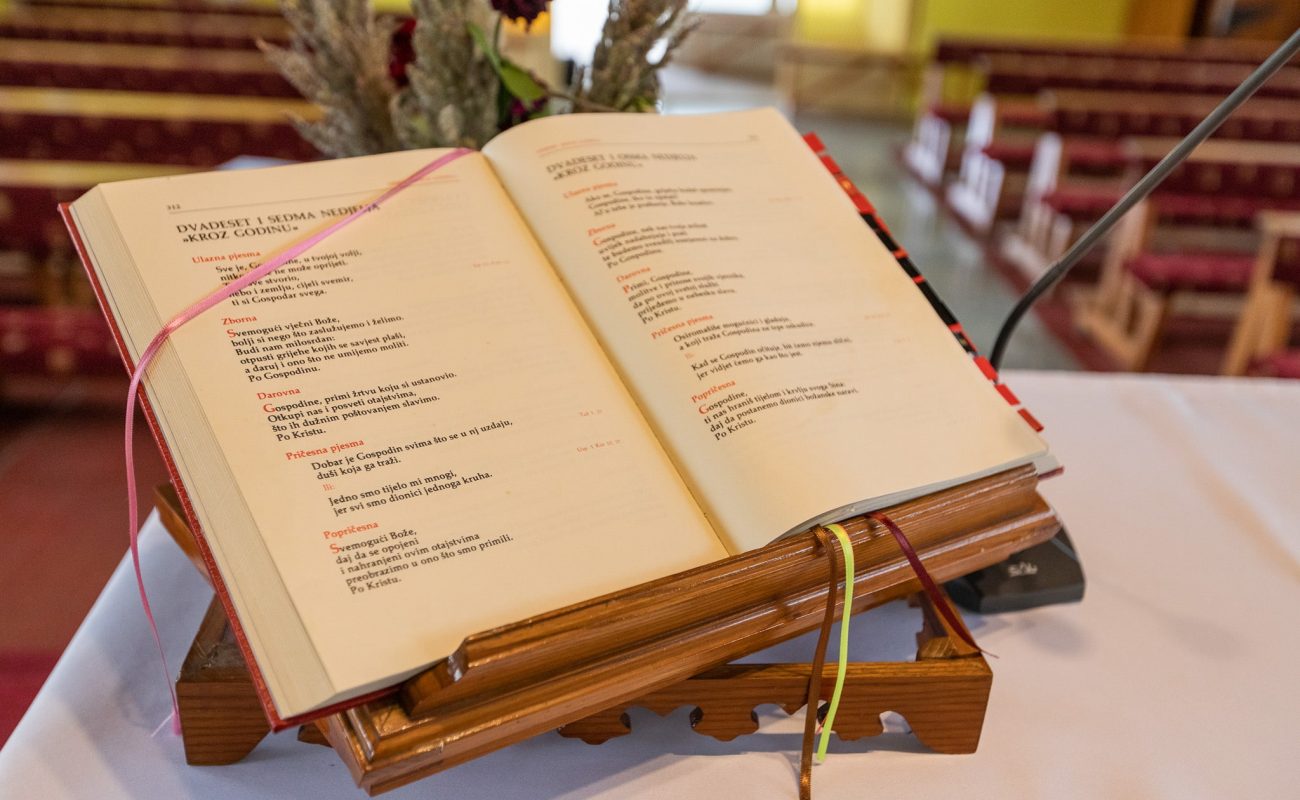 312
DVADESET I SEDMA NEDJELJA
»KROZ GODINU«
Ulazna pjesma
Sve je, u tvojoj volji,
ne može oprijeti.
stvorio,
i zemlju, cijeli svemir,
ti si Gospodar svega.
Zborna
Svemogući vječni Bože,
bolji si nego što zaslužujemo i želimo.
Budi nam milosrdan:
otpusti grijehe kojih se savjest plaši,
a daruj i ono što ne umijemo moliti.
Po Gospodinu.
Darovna
Gospodine, primi žrtvu koju si ustanovio.
Otkupi nas i posveti otajstvima,
što ih dužnim poštovanjem slavimo.
Po Kristu.
Pričesna pjesma
Dobar je Gospodin svima što se u nj uzdaju,
duši koja ga traži.
Ili:
Jedno smo tijelo mi mnogi,
jer svi smo dionici jednoga kruha.
Popričesna
Svemogući Bože,
daj da se opojeni
i nahranjeni ovim otajstvima
preobrazimo u ono što smo primili.
Po Kristu.
DVADESET I OSMA NEDJELJA
»KROZ GODINU«
Ulazna pjesma
Ako se, Gospodine, grijeha budeš spominjao,
Gospodine, tko će opstati?
Zborna
Gospodine, nek nas tvoja milost
uvijek
Po Gospodinu.
Darovna
Primi, Gospodine,
molitve i prinose svojih vjernika,
da po ovoj svetoj službi
prijeđemo u nebesku slavu.
Po Kristu.
Pričesna pjesma
Osiromašiše mogućnici i gladuju,
a koji traže Gospodina ne trpe oskudice.
Ili:
Kad se Gospodin očituje, bit ćemo njemu slični,
jer vidjet ćemo ga kao što jest.
Popričesna
Gospodine,
ti nas hraniš tijelom i krvlju svoga Sina
daj da postanemo dionici božanske naravi.
Po Kristu.